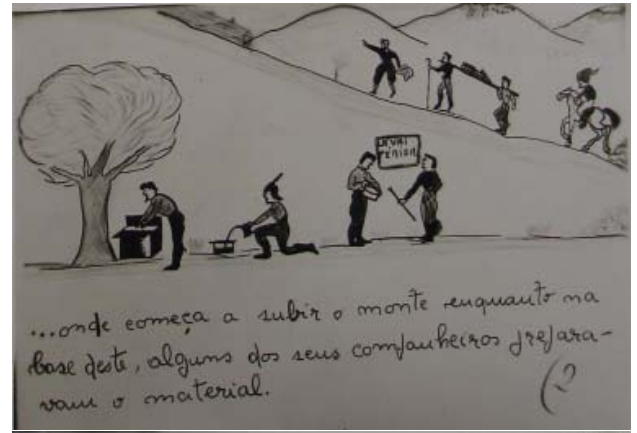 ...onde começa a subir o monte enquanto na
base deste, alguns dos seus companheiros prepara-
vam o material.
(2